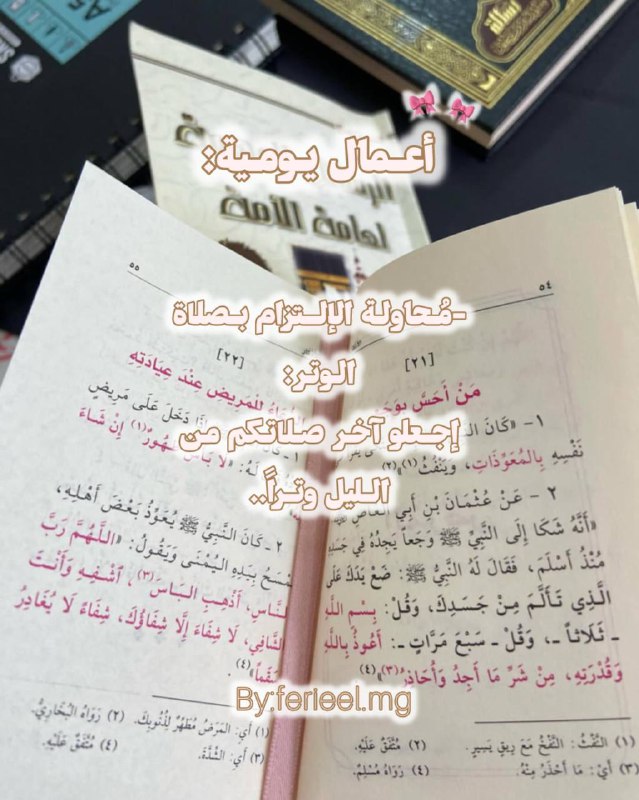 أعمال يومية:
-مُحاولة الإلتزام بصلاة
الوتر:
إجعلو آخر صلاتكم من
الليل وتراً..
By:ferieel.mg
رسالة
A5
لعامة الأمة
٥٤
[٢١]
مَنْ أَحَسَّ بِوَجَعٍ
١- «كَانَ
نَفْسِهِ بِالمُعَوِّذَاتِ، وَيَنْفُثُ»(١)(٢)
٢ - عَنْ عُثْمَانَ بْنِ أَبِي العَاصِ
«أَنَّهُ شَكَا إِلَى النَّبِيِّ ﷺ وَجَعاً يَجِدُهُ فِي جَسَدِهِ
مُنْذُ أَسْلَمَ، فَقَالَ لَهُ النَّبِيُّ ﷺ: ضَعْ يَدَكَ عَلَى
الَّذِي تَأَلَّمَ مِنْ جَسَدِكَ، وَقُلْ: بِسْمِ اللَّهِ
- ثَلَاثاً -، وَقُلْ - سَبْعَ مَرَّاتٍ -: أَعُوذُ بِاللَّهِ
وَقُدْرَتِهِ، مِنْ شَرِّ مَا أَجِدُ وَأُحَاذِرُ»(٣)(٤)
(١) النَّفْثُ: النَّفْخُ مَعَ رِيقٍ يَسِيرٍ. (٢) مُتَّفَقٌ عَلَيْهِ.
(٣) أَيْ: مَا أَحْذَرُ مِنْهُ. (٤) رَوَاهُ مُسْلِمٌ.
٥٥
[٢٢]
لِلْمَرِيضِ عِنْدَ عِيَادَتِهِ
دَخَلَ عَلَى مَرِيضٍ
لَهُ: «لَا بَأْسَ طَهُورٌ(١) إِنْ شَاءَ
٢ - كَانَ النَّبِيُّ ﷺ يُعَوِّذُ بَعْضَ أَهْلِهِ،
يَمْسَحُ بِيَدِهِ اليُمْنَى وَيَقُولُ: «اللَّهُمَّ رَبَّ
النَّاسِ، أَذْهِبِ البَاسَ(٣)، اشْفِهِ وَأَنْتَ
الشَّافِي، لَا شِفَاءَ إِلَّا شِفَاؤُكَ، شِفَاءً لَا يُغَادِرُ
سَقَماً»(٤).
(١) أَيِ: المَرَضُ مُطَهِّرٌ لِذُنُوبِكَ. (٢) رَوَاهُ البُخَارِيُّ.
(٣) أَيِ: الشِّدَّةُ. (٤) مُتَّفَقٌ عَلَيْهِ.